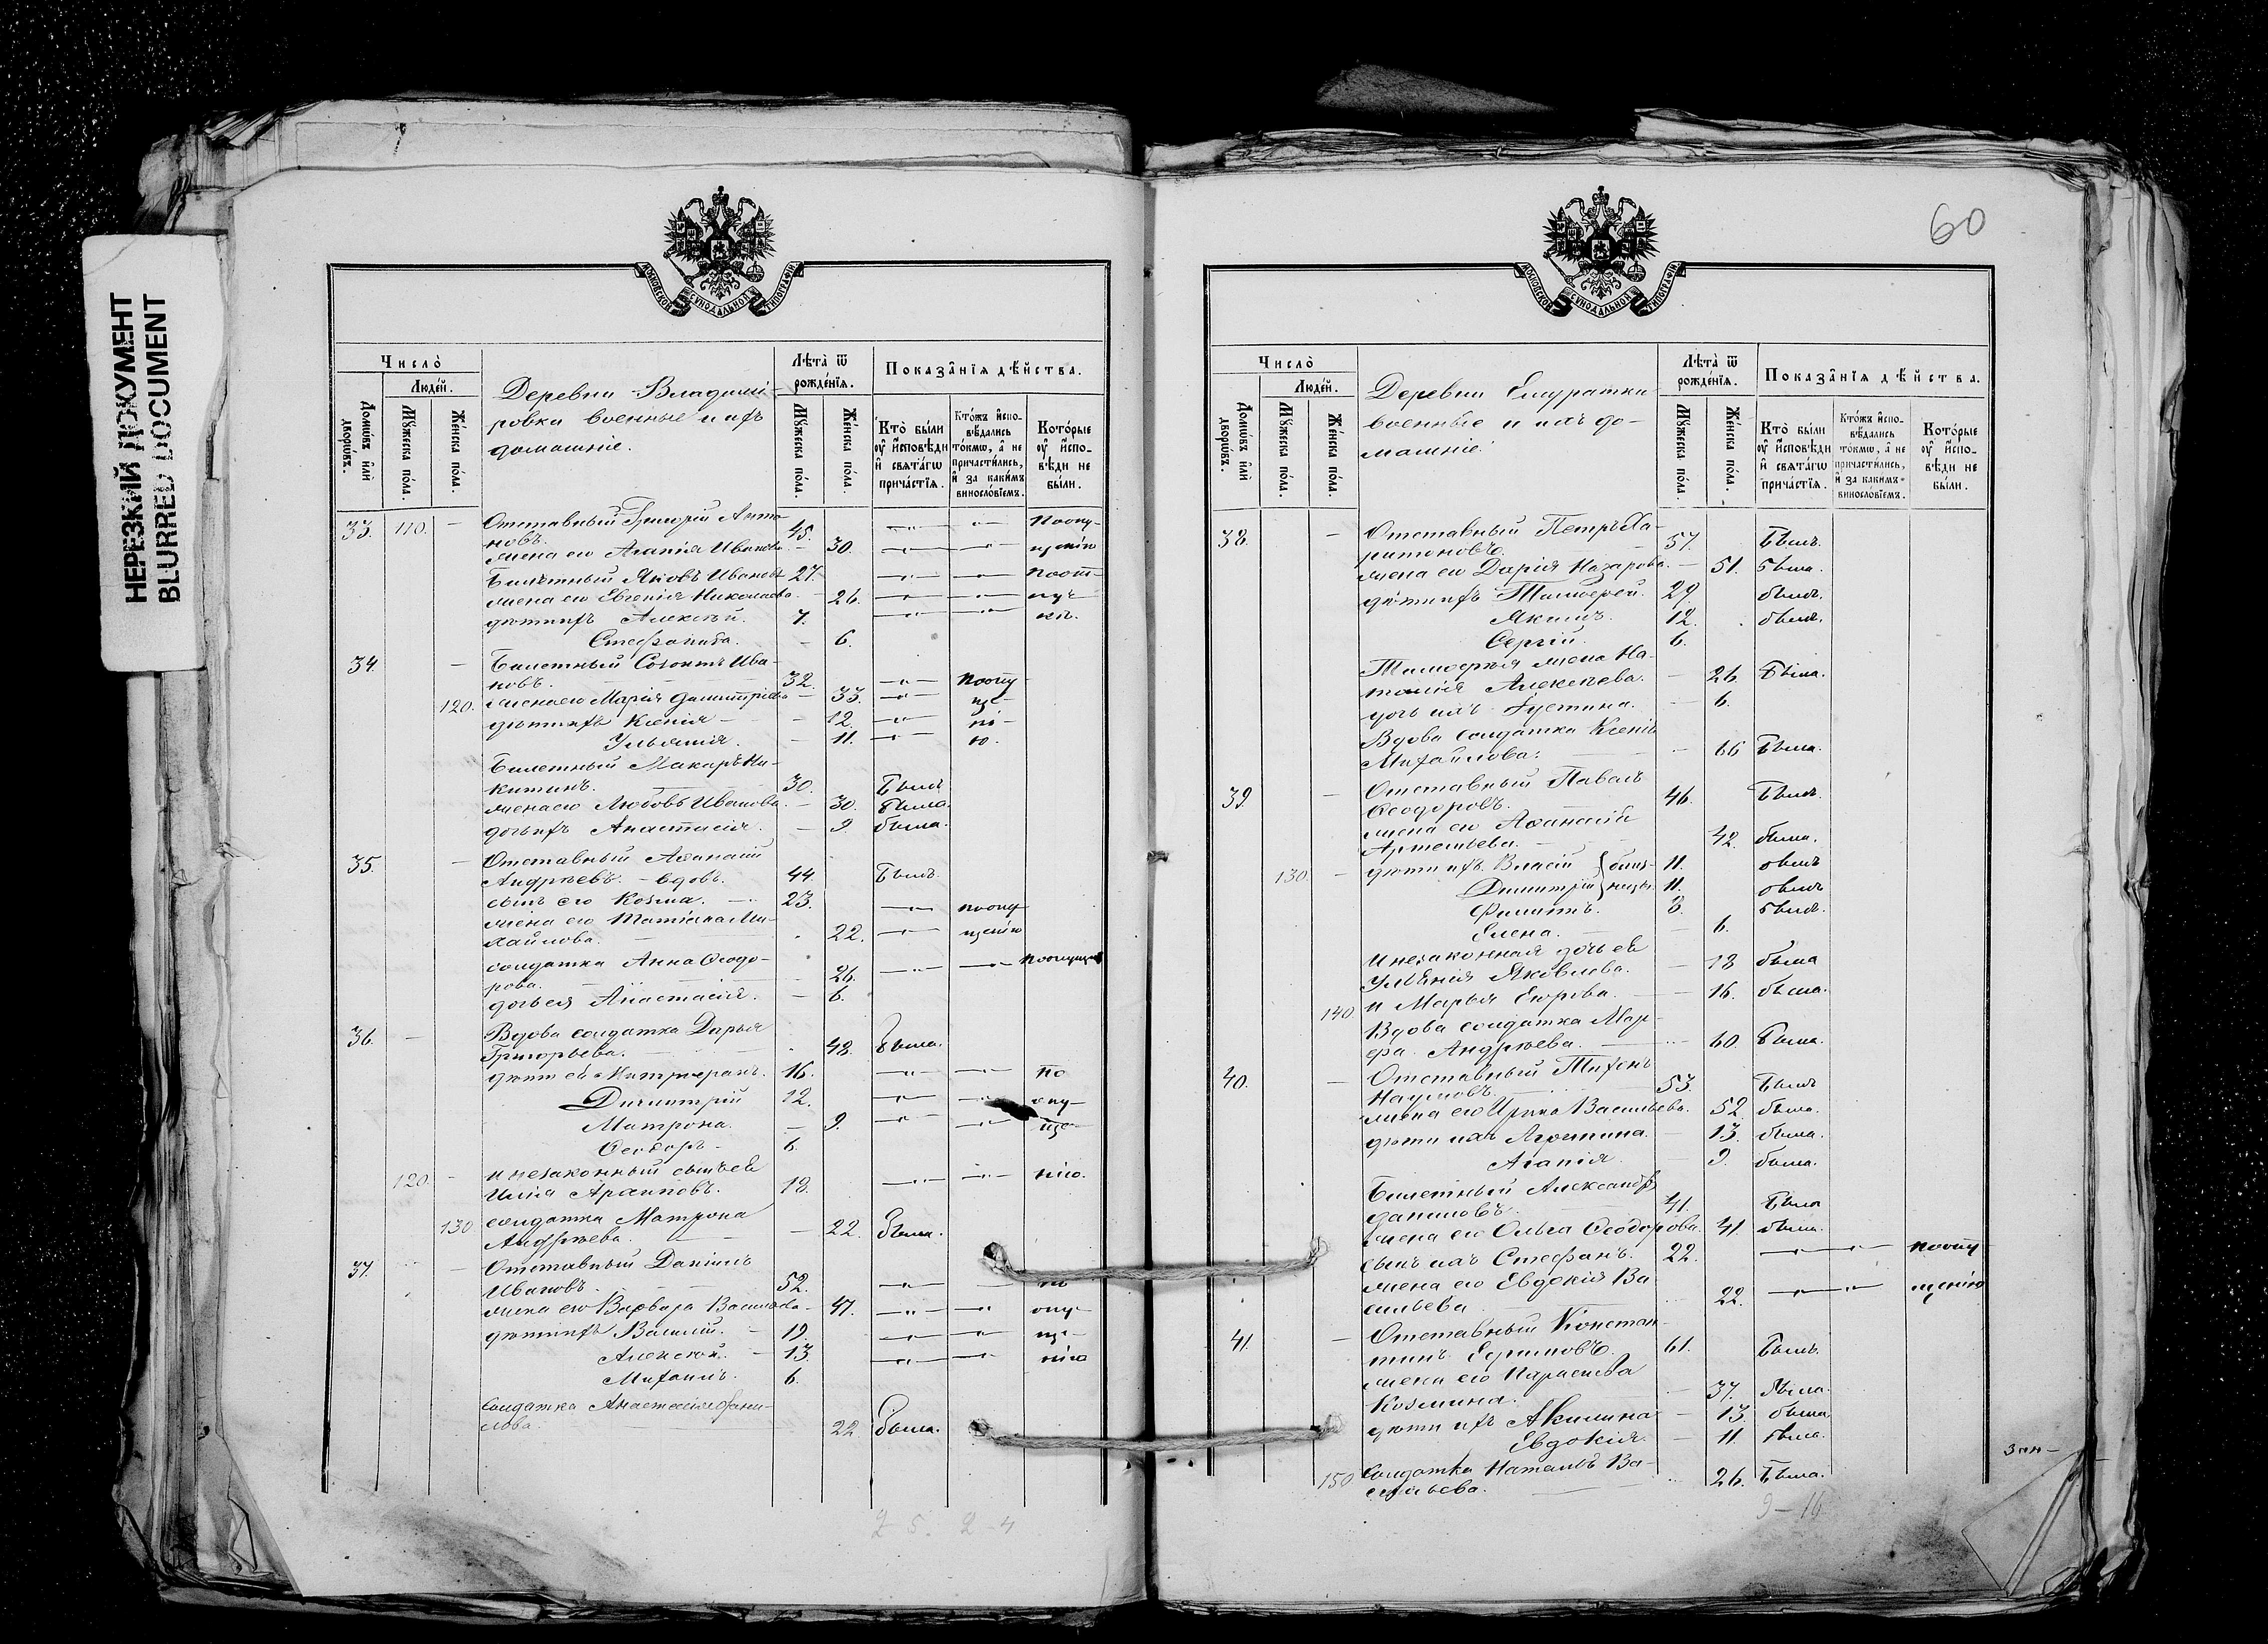 НЕРЕЗКИЙ ДОКУМЕНТ
BLURRED DOCUMENT
МОСКОВСКОЙ СѴНОДАЛЬНОЙ ТИПОГРАФІИ
Число̀
Людей.
Домѡвъ или дворѡвъ.
Мꙋжеска пола.
Женска пола.
Деревни Владими-
ровки военные и ихъ
домашніе.
Лѣта ѿ рожденія.
Мꙋжеска пола.
Женска пола.
Показанія дѣйства.
Кто были ᲂу исповѣди и свѧтагѡ причастїѧ.
Ктожъ исповѣдались токмѡ, а не причастились, и за какимъ винословїемъ.
Которые ᲂу исповѣди не были.
33. 110. – Отставный Григорій Анто-
новъ. 45. поопу-
жена его Агапія Иванова – 30. щенію
Билетный Яковъ Ивановъ 27.
жена его Евгенія Николаева – 26.
дѣти ихъ Алексѣй. 7.
Стефанида. – 6.
34. – Билетный Созонтъ Ива-
новъ. 32. поопу
120. жена его Марія Димитріева – 33. ще-
дѣти ихъ Ксенія – 12. ні-
Ульянія. – 11. ю.
Билетный Макаръ Ни-
китинъ. 30. Былъ
жена его Любовь Иванова. – 30. была
дочь ихъ Анастасія. – 9. была.
35. – Отставный Аѳанасій
Андреевъ – вдовъ. 44. Былъ.
сынъ его Козма. 23. поопу
жена его Татіана Ми-
хайлова. 22. щенію
солдатка Анна Ѳеодо-
рова. 26. поопущен
дочь ея Анастасія. – 6.
36. – Вдова солдатка Дарья
Григорьева. 48. была.
дѣти ея Митрофанъ. 16. по
Димитрій 12. опу-
Матрона. – 9. ще-
Ѳеодоръ – 6.
120. – и незаконный сынъ ея
Илія Архиповъ. 18. нію.
130 солдатка Матрона
Андреева. – 22. была.
37. – Отставный Даніилъ
Ивановъ. 52. по
жена его Варвара Васильева – 47. опу-
дѣти ихъ Василій. – 19. ще-
Алексѣй. – 13. нію
Михаилъ. 6.
Солдатка Анастасія Дани-
лова. 22 была.
2 5. 2 – 4
60
МОСКОВСКОЙ СѴНОДАЛЬНОЙ ТИПОГРАФІИ
Число̀
Людей.
Домѡвъ или дворѡвъ.
Мꙋжеска пола.
Женска пола.
военные и ихъ до-
машніе.
Лѣта ѿ рожденія.
Мꙋжеска пола.
Женска пола.
Показанія дѣйства.
Кто были ᲂу исповѣди и свѧтагѡ причастїѧ.
Ктожъ исповѣдались токмѡ, а не причастились, и за какимъ винословїемъ.
Которые ᲂу исповѣди не были.
38. – Отставный Петръ Ха-
ритоновъ. 57. Былъ.
жена его Дарія Назарова. – 51. была.
дѣти ихъ Тимоѳей. 29. былъ.
Якимъ. 12. былъ.
Сергій. 6.
Тимоѳея жена На-
талія Алексѣева. – 26. была.
дочь ихъ Іустина. – 6.
Вдова солдатка Ксенія
Михайлова. – 66 была.
39. – Отставный Павелъ
Ѳеодоровъ. 46. Былъ.
жена его Аѳанасія
Артемьева. 42. была.
130. – дѣти ихъ Власій близ- 11. былъ
Димитрій нецы. 11. былъ
Филиппъ. 8. былъ.
Елена. – 6.
и незаконная дочь ея
Ульянія Яковлева. – 18 была
140 и Марья Егорова. – 16. была.
Вдова солдатка Мар-
фа Андреева. 60 была.
40. – Отставный Тихонъ
Наумовъ. 53. Былъ
жена его Ирина Васильева. 52 была.
дѣти ихъ Агрипина. – 13. была.
Агапія. – 9. была.
Билетный Александръ
Даниловъ. 41. Былъ
жена его Ольга Ѳеодорова. 41. была.
сынъ ихъ Стефанъ. 22. поопу
жена его Евдокія Ва
сильева 22. щенію
41. – Отставный Констан-
тинъ 61. Былъ.
жена его Параскева
Козмина. 37. была.
дѣти ихъ Акилина – 13. была
Евдокія. – 11. была.
150 Солдатка Наталья Ва-
сильева. 26. была.
9 – 16